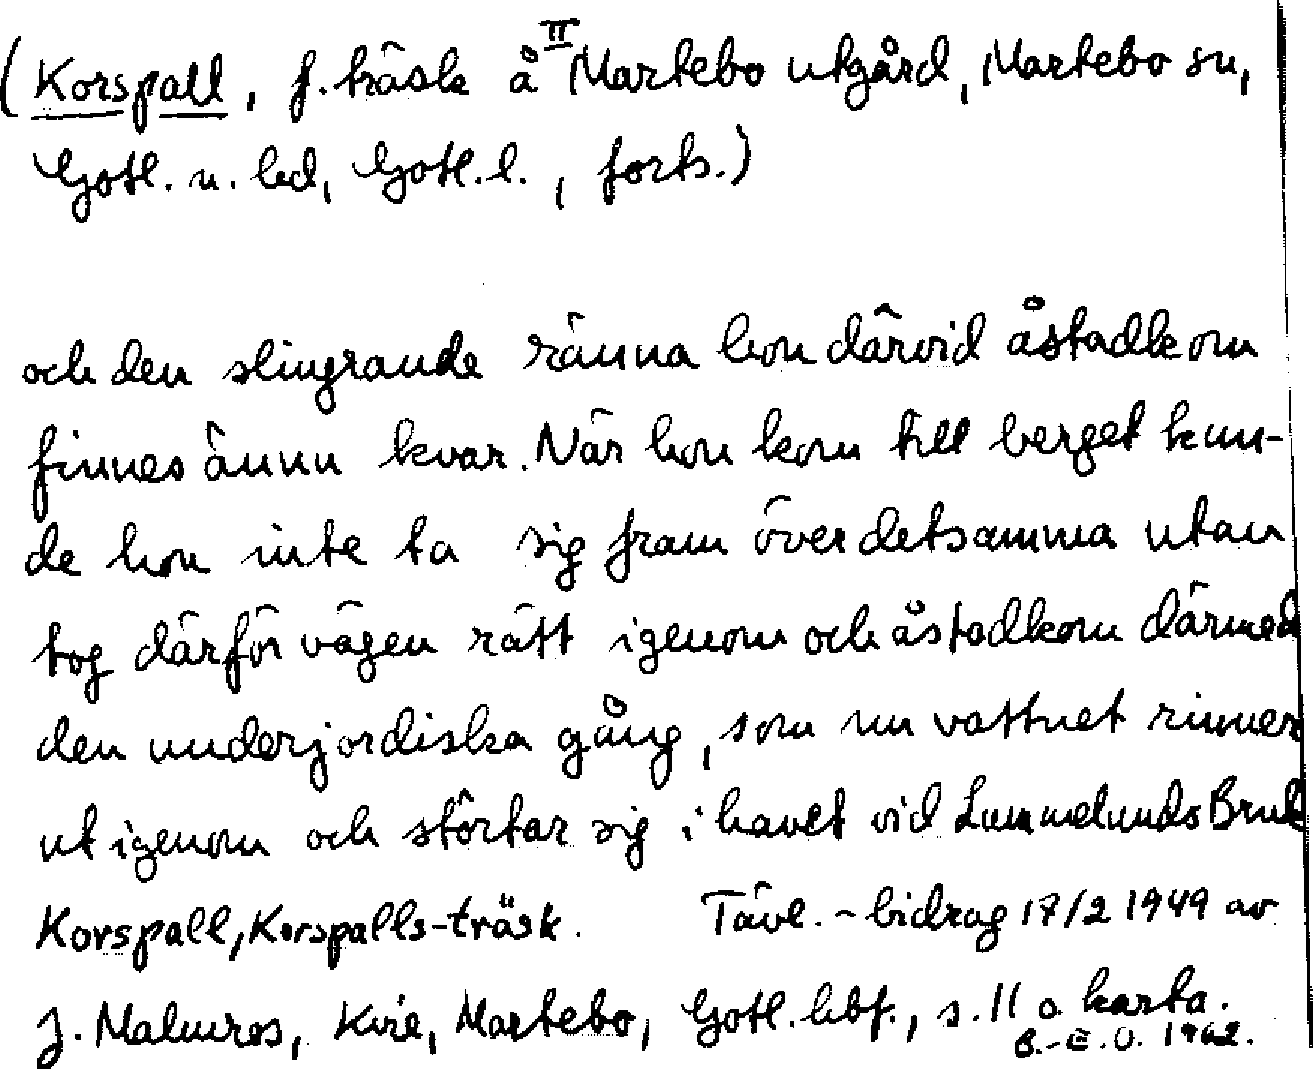 (Korspall, f. träsk å II Martebo utgård, Martebo sn,
Gotl. n. hd, Gotl. l., forts.)
och den slingrande ränna hon därvid åstadkom
finnes ännu kvar. När hon kom till berget kun-
de hon inte ta sig fram över detsamma utan
tog därför vägen rätt igenom och åstadkom därmed
den underjordiska gång, som nu vattnet rinner
ut igenom och störtar sig i havet vid Lummelunds Bruk
Korspall, Korspalls-träsk. Tävl.-bidrag 17/2 1949 av
J. Malmros, Kvie, Martebo, Gotl. hbf., s. 11 o karta.
B.-E. O. 1962.